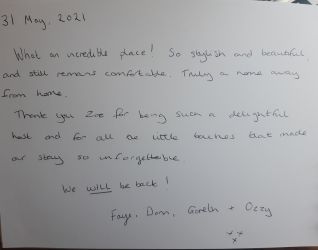 31 May, 2021
What an incredible place! So stylish and beautiful
and still remains comfortable. Truly a home away
from home.
Thank you Zoe for being such a delightful
host and for all the little touches that made
our stay so unforgettable.
We will be back!
Faye, Dom, + Ozzy
x x
x